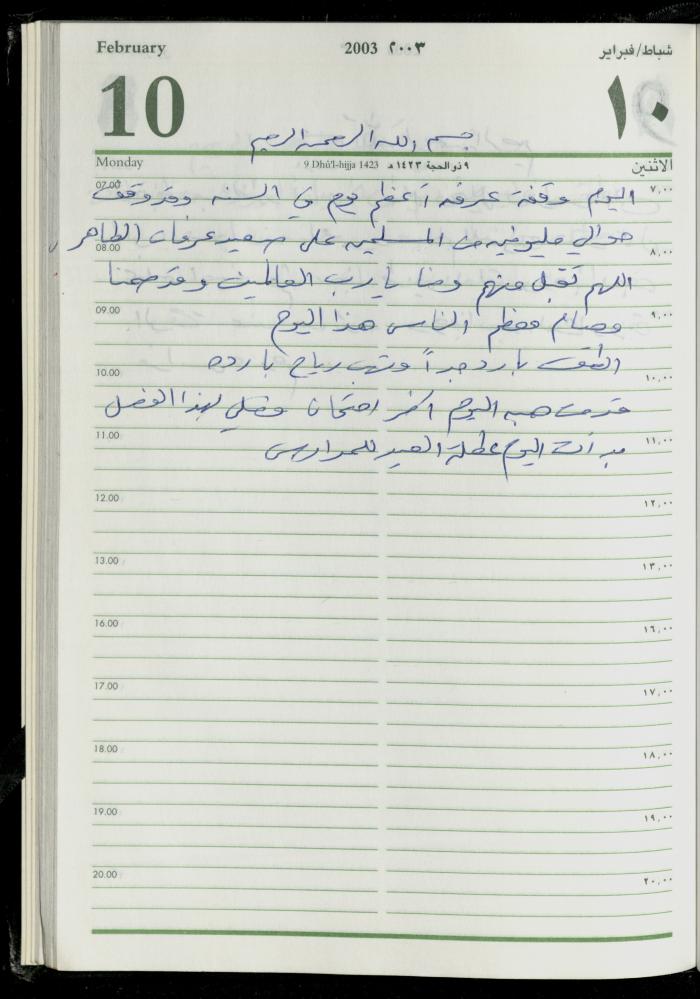 February 2003 ٢٠٠٣ شباط/فبراير
10 ١٠
بسم الله الرحمن الرحيم
Monday 9 Dhû'l-hijja 1423 ٩ ذو الحجة ١٤٢٣ هـ الاثنين
07.00 ٧,٠٠
اليوم وقفة عرفه أعظم يوم في السنه وقد وقف
حوالي مليونين من المسلمين على صعيد عرفات الطاهر
08.00 ٨,٠٠
اللهم تقبل منهم ومنا يا رب العالمين وقد صمنا
09.00 ٩,٠٠
وصام معظم الناس هذا اليوم
الطقس بارد جداً وتهب رياح بارده
10.00 ١٠,٠٠
قدمت هبه اليوم اخر امتحان فصلي لهذا الفصل
11.00 ١١,٠٠
بدأت اليوم عطلة العيد للمدارس
12.00 ١٢,٠٠
13.00 ١٣,٠٠
16.00 ١٦,٠٠
17.00 ١٧,٠٠
18.00 ١٨,٠٠
19.00 ١٩,٠٠
20.00 ٢٠,٠٠